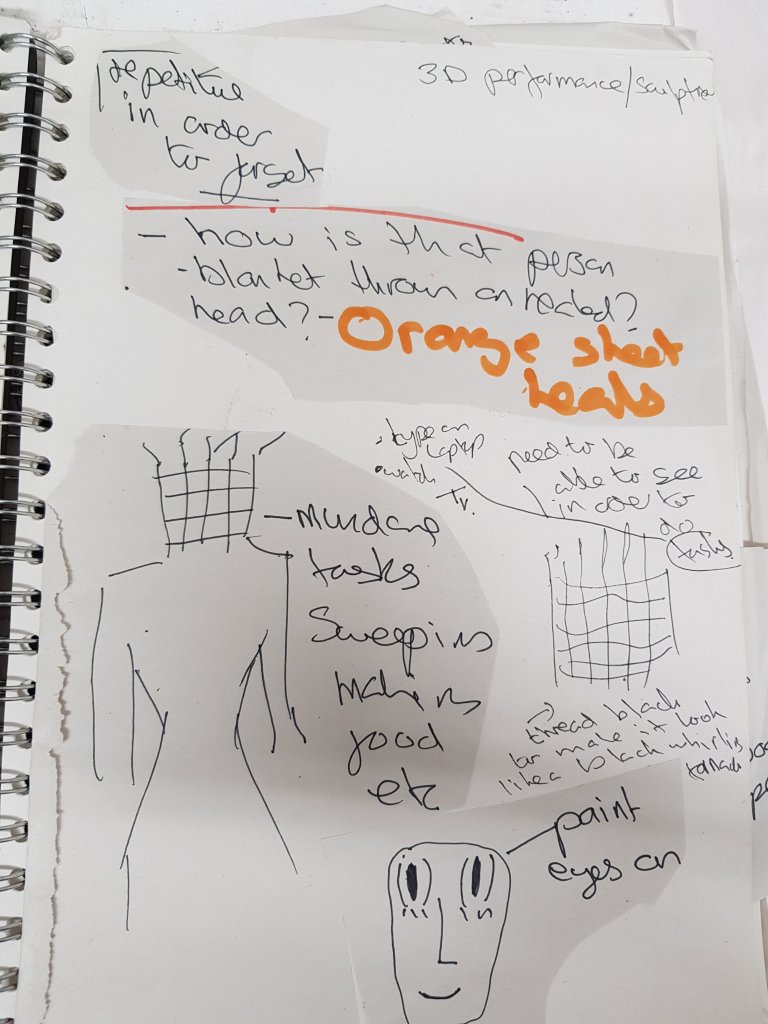 repetitive
in order
to forget
3D performance/sculpture
- how is that person
- blanket thrown on healed?
head? - Orange sheet
heals
- Mundane
tasks
Sweeping
Making
food
etc
. type on
laptop
. watch
TV.
need to be
able to see
in order to
do
tasks
thread black
to make it look
like a black whirling
tornado
paint
eyes on